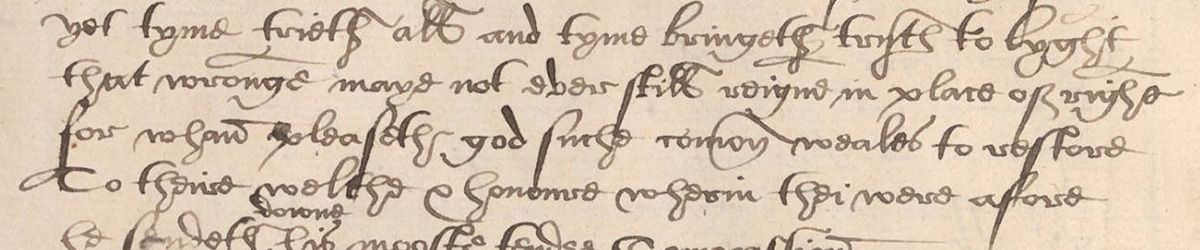 yet tyme trieth all and tyme bringeth truth to lyght
that wronge maye not ever still reigne in place of right
for whan pleaseth god suche comon weales to restore
To theire welthe & honoure wherin thei were afore
downe
he sendeth his moste tendre Compassion